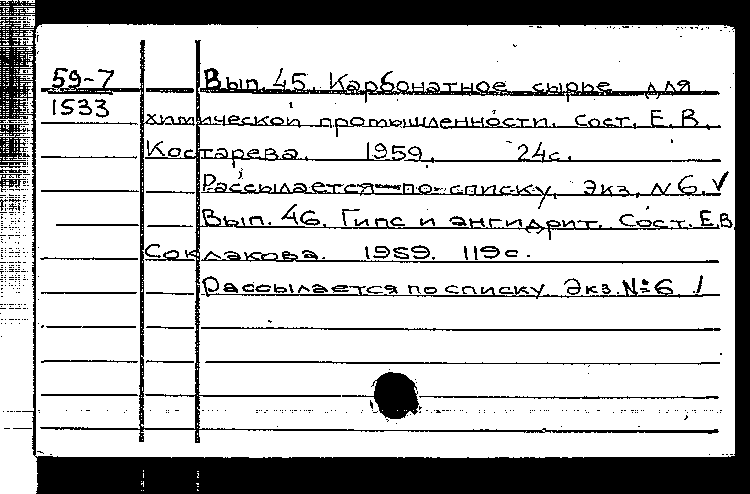 59-7 Вып. 45. Карбонатное сырье для
1533 химической промышленности. Сост. Е. В.
Костарева. 1959. 24с.
Рассылается по списку. Экз. N 6. V
Вып. 46. Гипс и ангидрит. Сост. Е.В.
Соклакова. 1959. 119с.
Рассылается по списку Экз. № 6